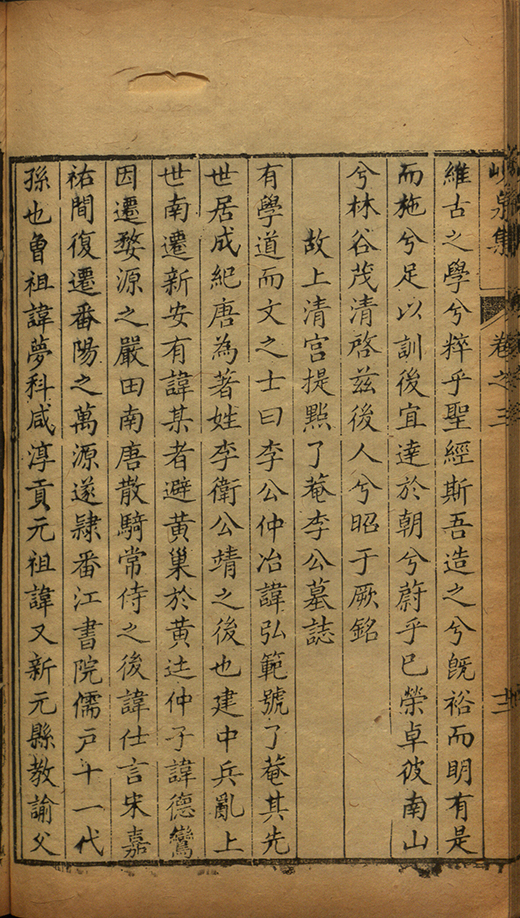 峴泉集 卷之三
維古之學兮粹乎聖經斯吾造之兮旣裕而明有是
而施兮足以訓後宜達於朝兮蔚乎已榮卓彼南山
兮林谷茂清啓茲後人兮昭于厥銘
故上清宮提點了菴李公墓誌
有學道而文之士曰李公仲冶諱弘範號了菴其先
世居成紀唐為著姓李衛公靖之後也建中兵亂上
世南遷新安有諱某者避黃巢於黃𡋯仲子諱德鸞
因遷婺源之嚴田南唐散騎常侍之後諱仕言宋嘉
祐間復遷番陽之萬源遂隷番江書院儒戶十一代
孫也曾祖諱夢科咸淳貢元祖諱又新元縣教諭父